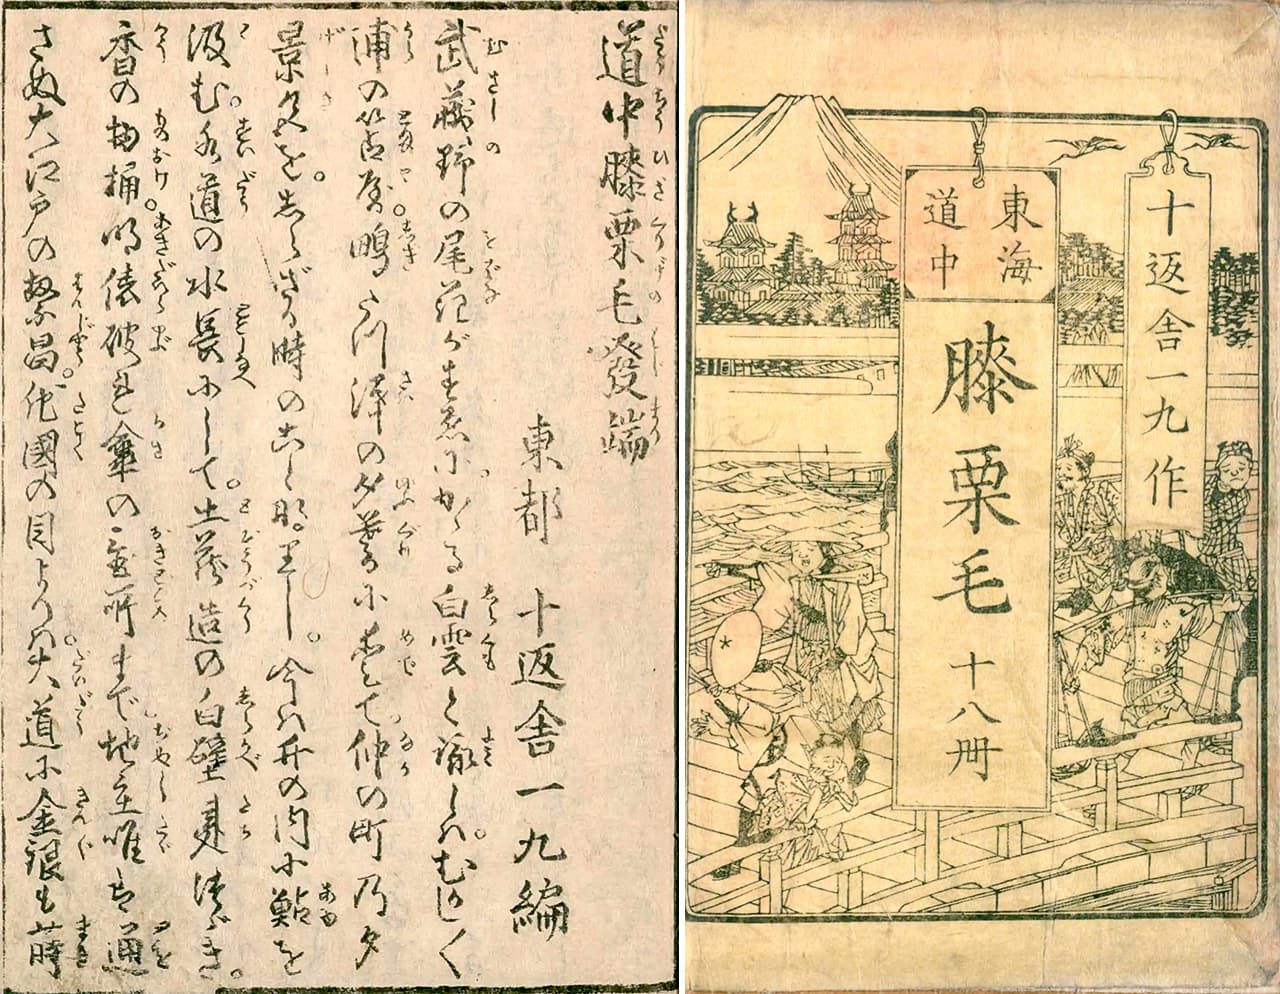 十返舍一九作
東海
道中
膝栗毛 十八冊
道中膝栗毛發端
東都 十返舍一九編
武藏野の尾花がすゑにかゝる白雲と詠しは。むかし〱
浦の苫屋。鴫たつ澤の夕暮に愛て。仲の町乃夕
景色を。しらざる時のことなりし。今は井の内に鮎を
汲む。水道の水長にして。土藏造の白壁建つゞき。
香の物桶。明俵破れ傘の置所まで。地主唯は通
さぬ大江戸の繁昌。他國の目よりは。大道に金銀も蒔